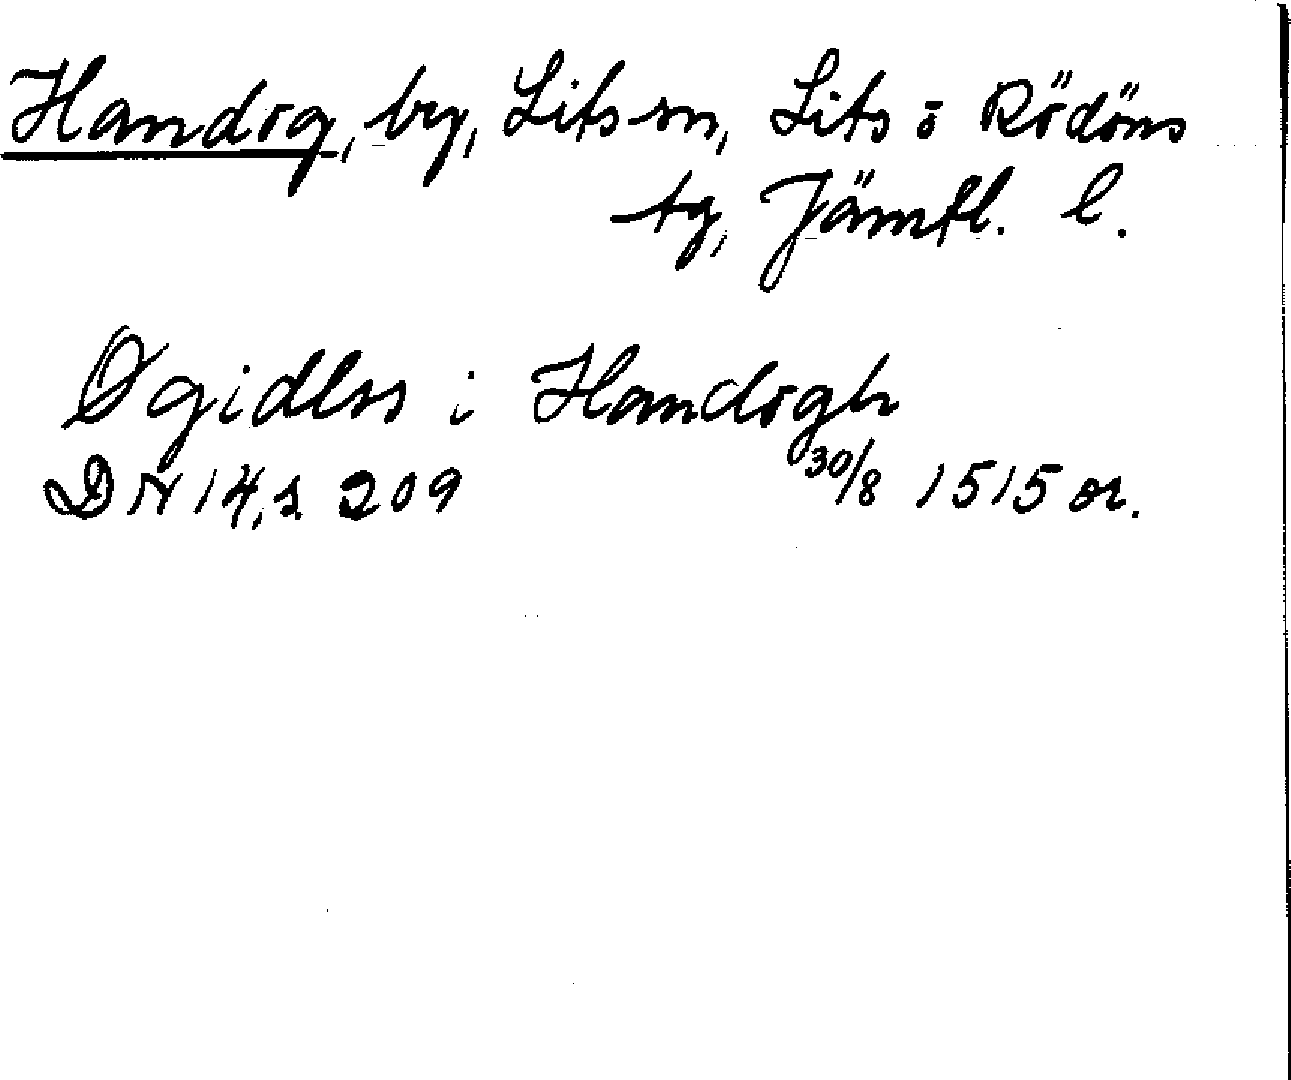 Handog, by, Lits sn, Lits o Rödöns
tg, Jämtl. l.
Øgidlss i Handogh
DN 14, s. 209 30/8 1515 or.